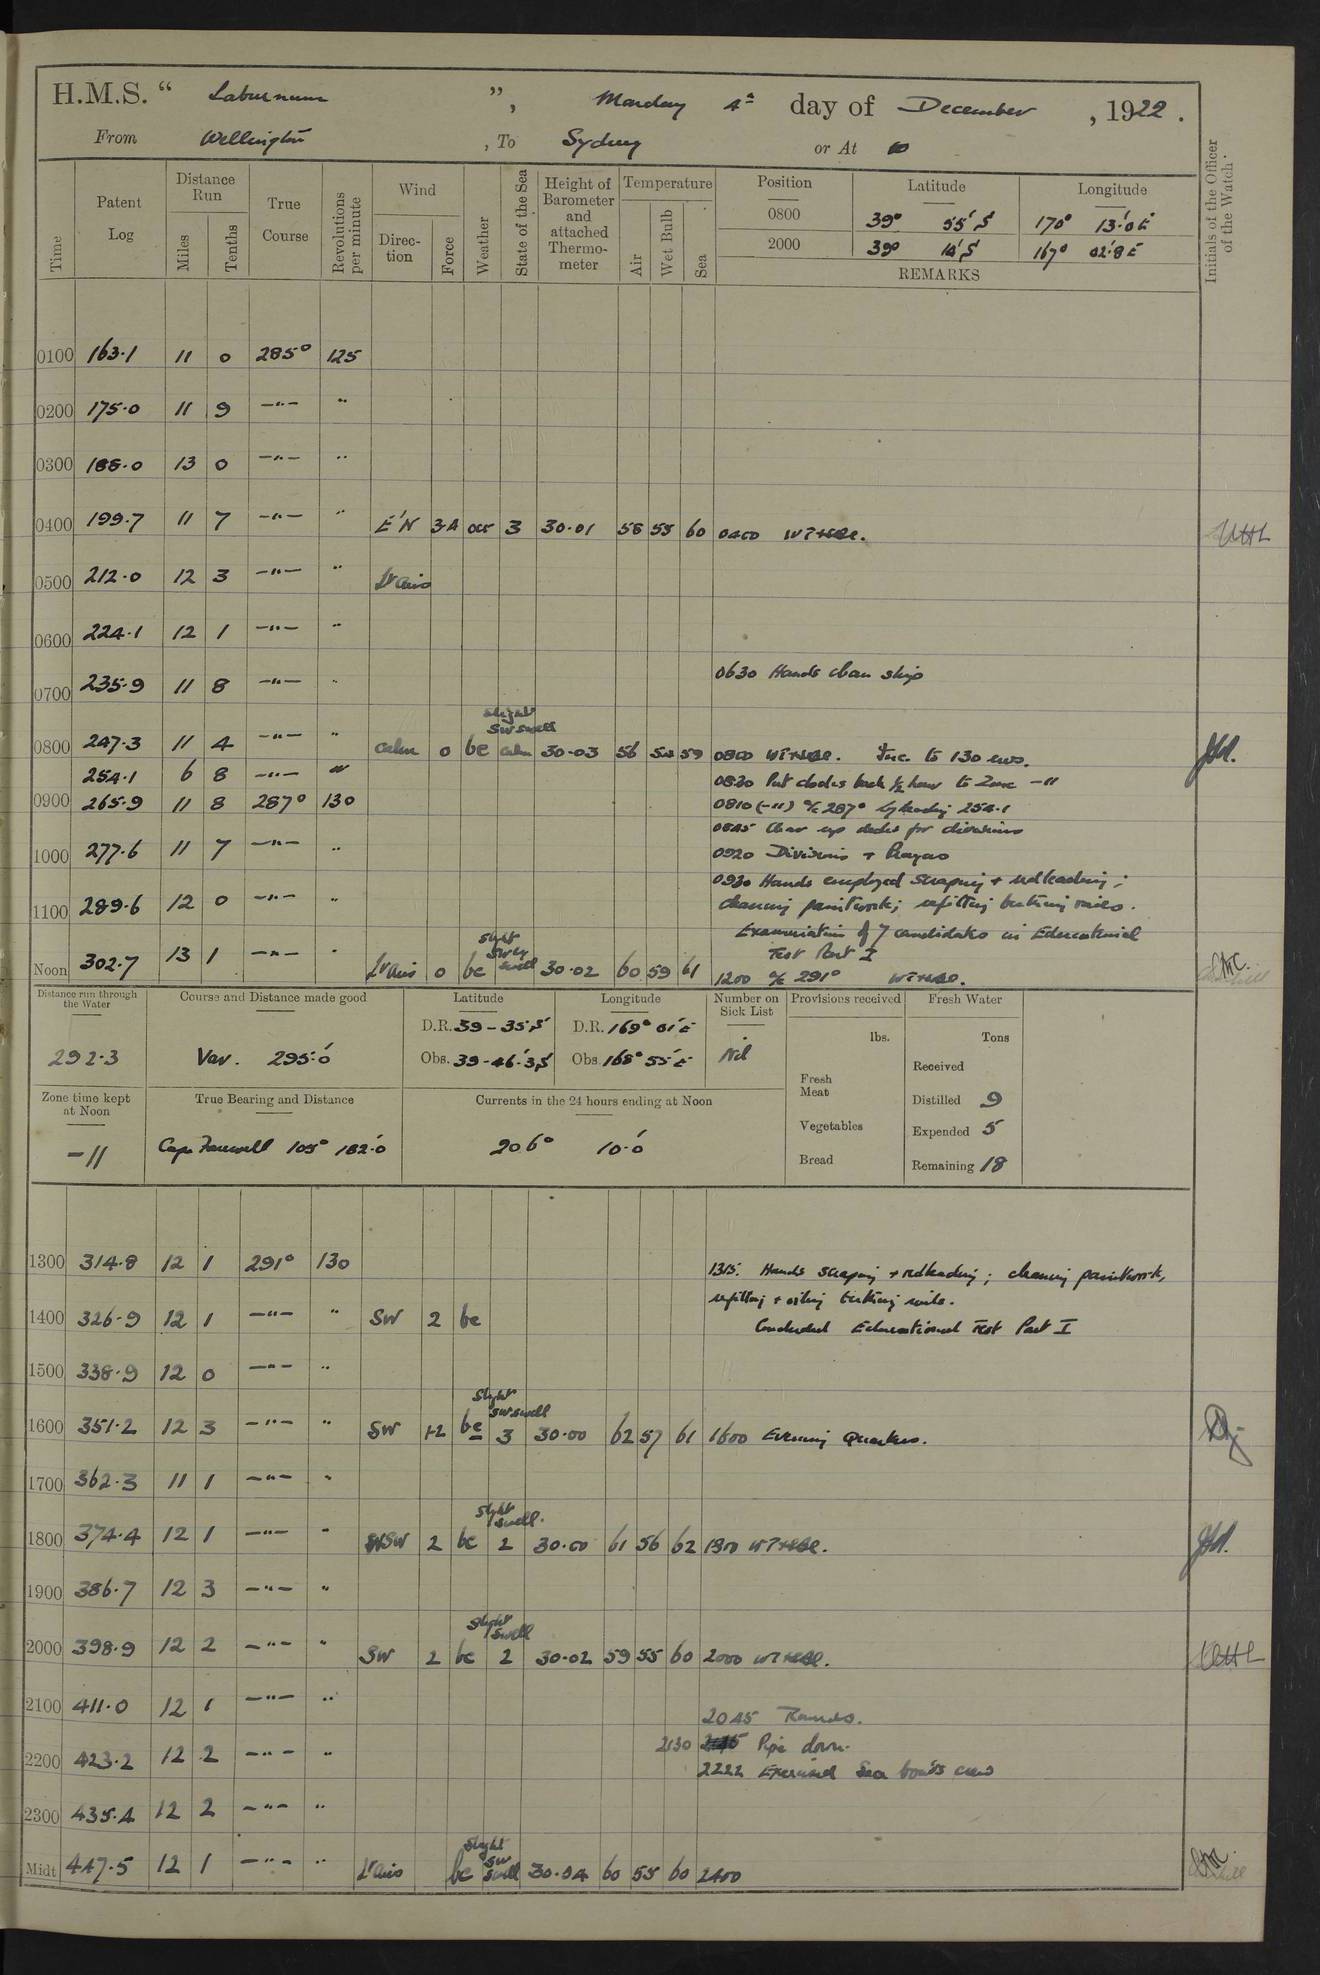 H.M.S. “ Laburnum ”, Monday 4th day of December , 1922 .
From Wellington , To Sydney or At
Time Patent Log Distance Run Miles Tenths True Course Revolutions per minute Wind Direction Force Weather State of the Sea Height of Barometer and attached Thermometer Temperature Air Wet Bulb Sea Position Latitude Longitude Initials of the Officer of the Watch.
0800 39° 55′ S 170° 13′.0 E
2000 39° 14′ S 167° 02′.8 E
REMARKS
0100 163.1 11 0 285° 125
0200 175.0 11 9 —"— "
0300 188.0 13 0 —"— "
0400 199.7 11 7 —"— " E'N 3.4 3 30.01 58 55 60 0400
0500 212.0 12 3 —"— " Lt airs
0600 224.1 12 1 —"— "
0630 Hands clean ship
0700 235.9 11 8 —"— "
slight
SW swell
0800 247.3 11 4 —"— " calm 0 bc calm 30.03 56 54 59 0800 Inc. to 130 revs.
254.1 6 8 —"— " 0830 Put clocks back ½ hour to Zone -11
0900 265.9 11 8 287° 130 0810 (-11) a/c 287° 254.1
0845 Clear up decks for divisions
1000 277.6 11 7 —"— " 0920 Divisions + Prayers
0930 Hands employed scraping + redleading;
1100 289.6 12 0 —"— " cleaning paintwork; refitting
Examination of 7 candidates in Educational
Test Part I
Noon 302.7 13 1 —"— " Lt airs 0 bc slight swell 30.02 60 59 61 1200 a/c 291°
Distance run through the Water Course and Distance made good Latitude Longitude Number on Sick List Provisions received Fresh Water
D.R. 39-35′ S D.R. 169° 01′ E lbs. Tons
292.3 Var. 295.0 Obs. 39-46′.3 S Obs. 168° 55′ E Nil Received
Fresh Meat
Zone time kept at Noon True Bearing and Distance Currents in the 24 hours ending at Noon Distilled 9
Vegetables Expended 5
-11 Cape Farewell 105° 182.0 206° 10.0
Bread Remaining 18
1300 314.8 12 1 291° 130 1315. Hands scraping + redleading; cleaning paintwork,
refitting + oiling
1400 326.9 12 1 —"— " SW 2 bc Concluded Educational Test Part I
1500 338.9 12 0 —"— "
slight
SW swell
1600 351.2 12 3 —"— " SW 1-2 bc 3 30.00 62 57 61 1600 Evening Quarters.
1700 362.3 11 1 —"— "
slight
swell.
1800 374.4 12 1 —"— " WSW 2 bc 2 30.00 61 56 62 1800
1900 386.7 12 3 —"— "
slight
swell
2000 398.9 12 2 —"— " SW 2 bc 2 30.02 59 55 60 2000
2100 411.0 12 1 —"— "
2045 Rounds.
2200 423.2 12 2 —"— " 2130 Pipe down.
2222 Exercised Sea boats crew
2300 435.4 12 2 —"— "
slight
SW
Midt 447.5 12 1 —"— " Lt airs bc swell 30.04 60 55 60 2400